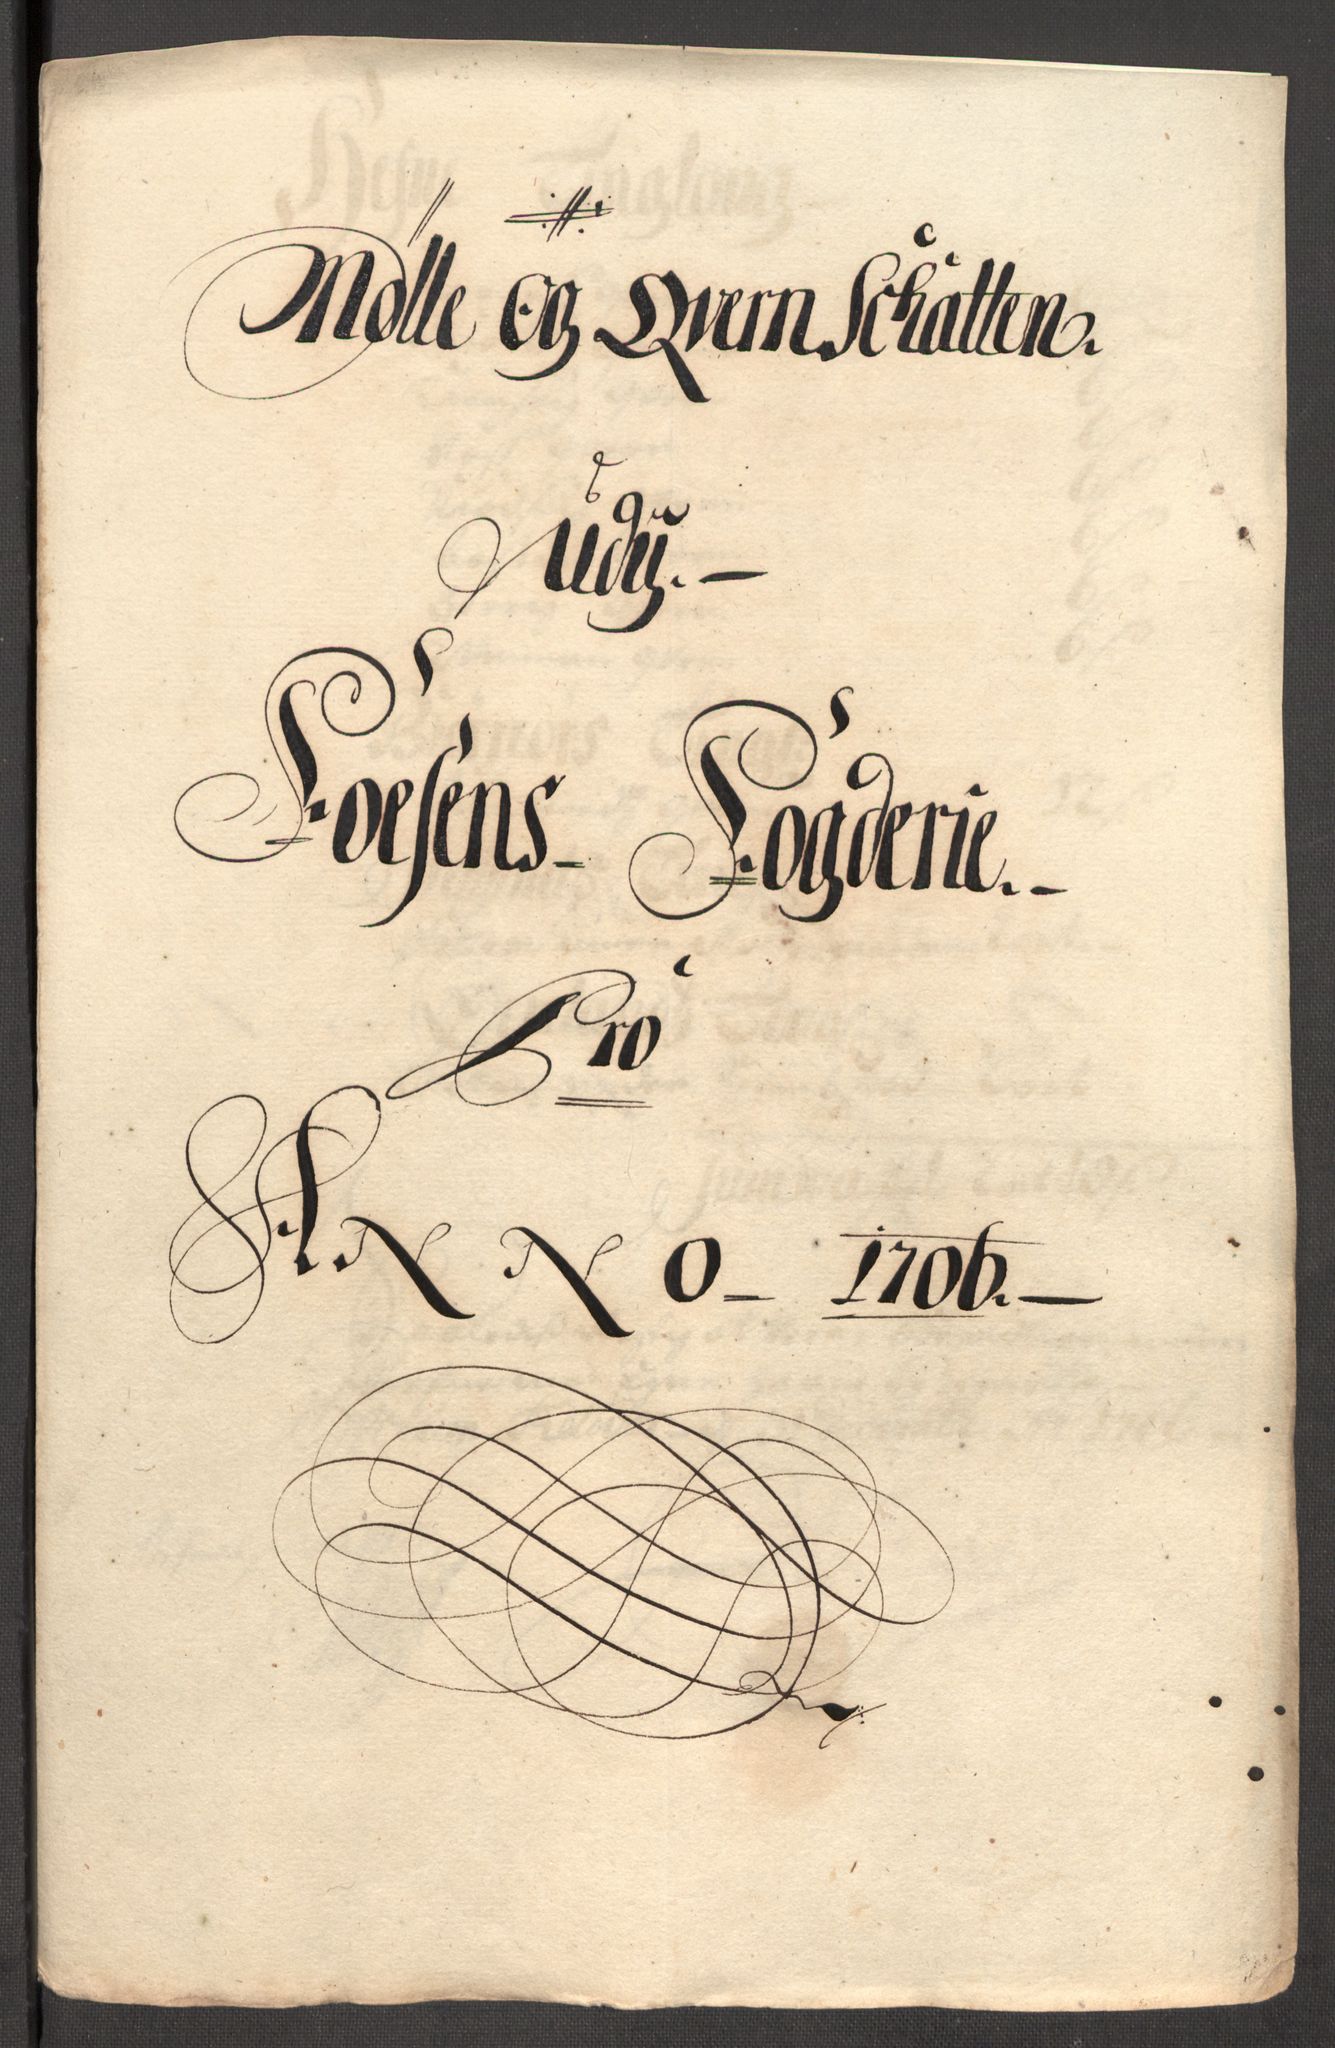 Mølle Og Qvern Schatten.
Udj.
Foesens Fogderie.
Pro
ANNO 1706.